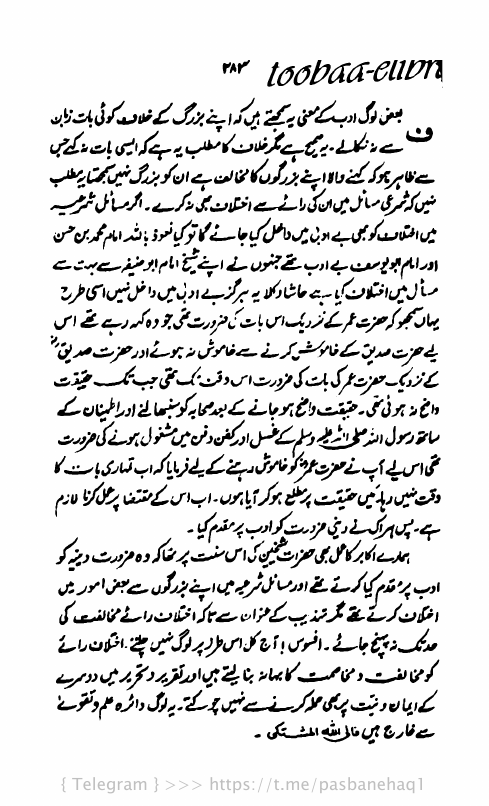 ۲۸۳ toobaa-elibra
بعض لوگ ادب کے معنی یہ سمجھتے ہیں کہ اپنے بزرگ کے خلاف کوئی بات زبان
ف سے نہ نکالے۔ یہ صحیح ہے مگر خلاف کا مطلب یہ ہے کہ ایسی بات نہ کہے جس
سے ظاہر ہو کہ کہنے والا اپنے بزرگوں کا مخالف ہے ان کو بزرگ نہیں سمجھتا یہ مطلب
نہیں کہ شرعی مسائل میں ان کی رائے سے اختلاف بھی نہ کرے۔ اگر مسائل شرعیہ
میں اختلاف کو بھی بے ادبی میں داخل کیا جائے گا تو کیا نعوذ باللہ امام محمد بن حسن
اور امام ابو یوسف بے ادب تھے جنہوں نے اپنے شیخ امام ابو حنیفہ سے بہت سے
مسائل میں اختلاف کیا ہے حاشا وکلا یہ ہرگز بے ادبی میں داخل نہیں اسی طرح
یہاں سمجھو کہ حضرت عمر کے نزدیک اس بات کی ضرورت تھی جو وہ کہہ رہے تھے اس
لیے حضرت صدیق کے خاموش کرنے سے خاموش نہ ہوئے اور حضرت صدیق
کے نزدیک حضرت عمر کی بات کی ضرورت اس وقت تک تھی جب تک حقیقت
واضح نہ ہوئی تھی۔ حقیقت واضح ہو جانے کے بعد صحابہ کو سنبھالنے اور اطمینان کے
ساتھ رسول اللہ صلی اللہ علیہ وسلم کے غسل اور کفن دفن میں مشغول ہونے کی ضرورت
تھی اس لیے آپ نے حضرت عمر کو خاموش رہنے کے لیے فرمایا کہ اب تمہاری بات کا
وقت نہیں رہا میں حقیقت پر مطلع ہو کر آیا ہوں۔ اب اس کے مقتضا پر عمل کرنا لازم
ہے۔ پس ہر اک نے دینی ضرورت کو ادب پر مقدم کیا۔
ہمارے اکابر کا عمل بھی حضرات شیخین کی اس سنت پر تھا کہ وہ ضرورت دینیہ کو
ادب پر مقدم کیا کرتے تھے اور مسائل شرعیہ میں اپنے بزرگوں سے بعض امور میں
اختلاف کرتے تھے مگر تہذیب کے عنوان سے تاکہ اختلاف رائے مخالفت کی
حد تک نہ پہنچ جائے۔ افسوس! آج کل اس طرز پر لوگ نہیں چلتے۔ اختلاف رائے
کو مخالفت و مخاصمت کا بہانہ بنا لیتے ہیں اور تقریر و تحریر میں دوسرے
کے ایمان و نیت پر بھی حملہ کرنے سے نہیں چوکتے۔ یہ لوگ دائرہ علم و تقوے
سے خارج ہیں فالی اللہ المشتکی۔
{ Telegram } >>> https://t.me/pasbanehaq1